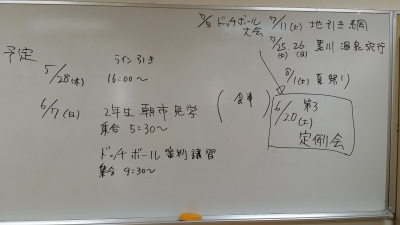 7/5 ドッチボール大会
7/11(土) 地引き網
7/25.26 黒川温泉旅行
(土)(日)
8/1(土) 夏祭り
予定
ライン引き
5/28(木) 16:00~
6/7(日) 2年生 朝市見学
集合 5:30~
(食事)
6/20(土) 第3
定例会
ドッチボール審判講習
集合 9:30~